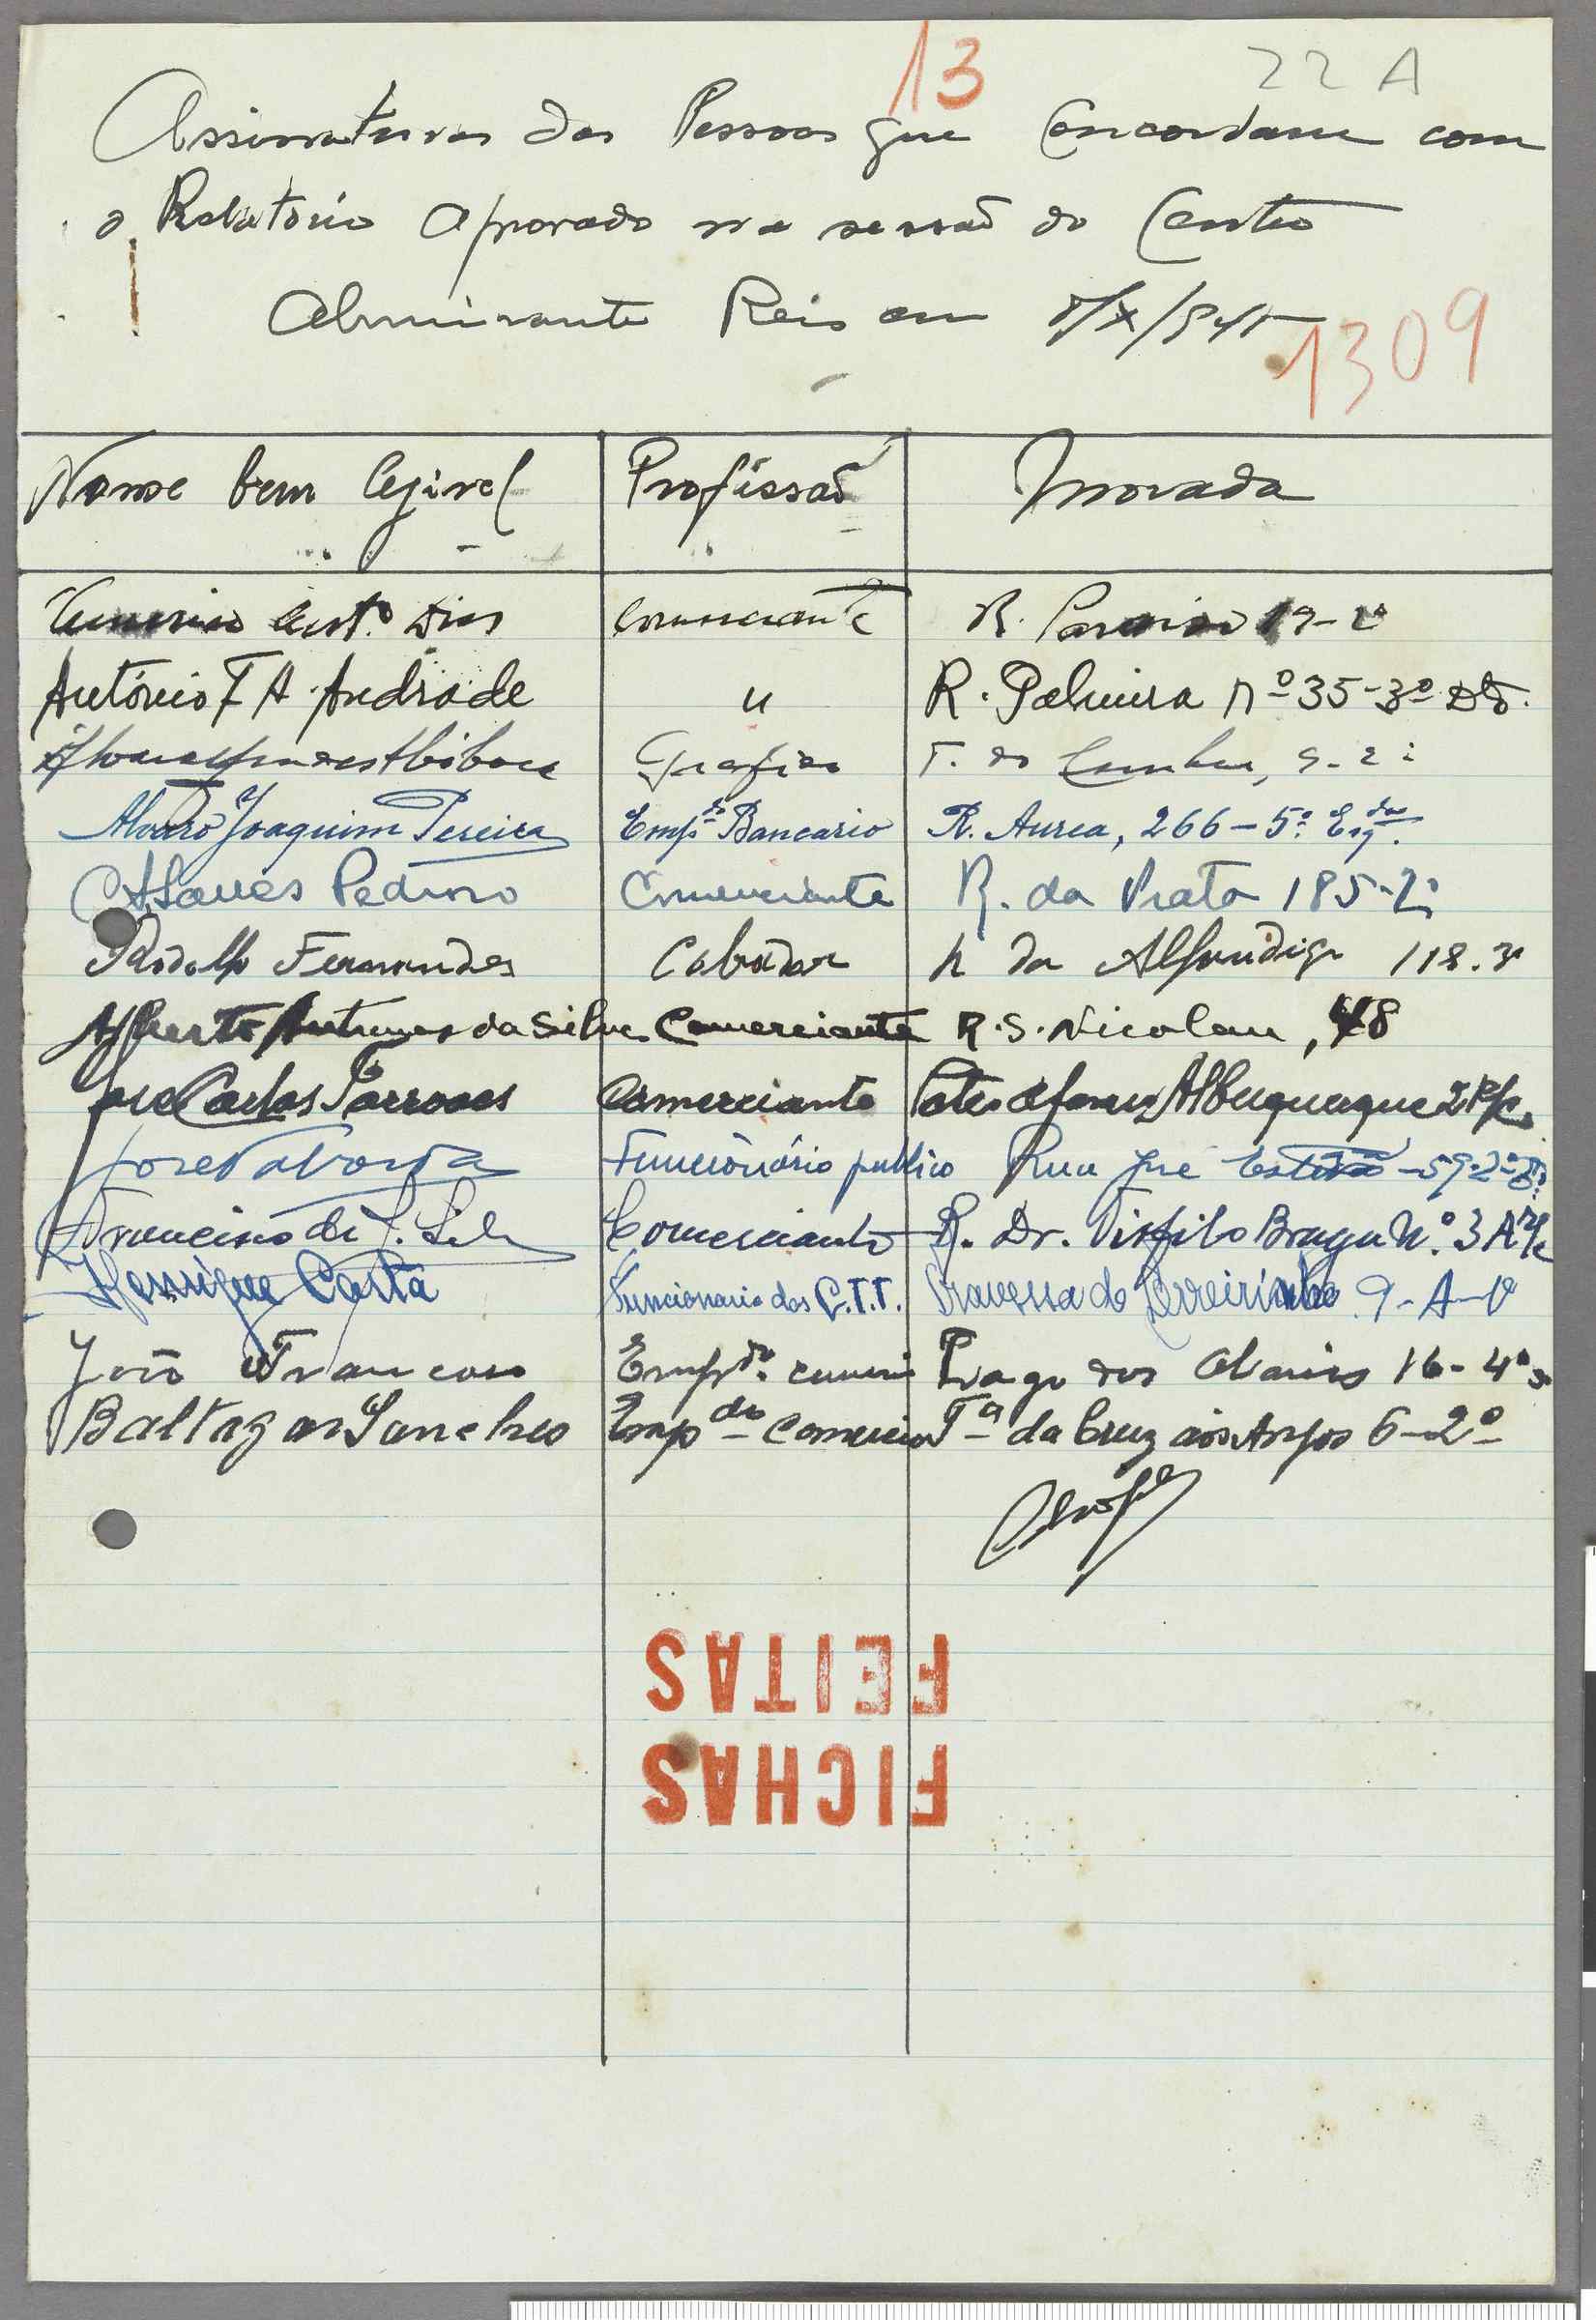 13
22 A
Assinaturas das Pessoas que Concordam com
o Relatório aprovado na sessão do Centro
Almirante Reis em 8/X/945
1309
Nome bem legivel Profissão Morada
Antº Dias comerciante R. Paraiso 19-2º
António F A Andrade " R. Palmira Nº 35-3º Dtº.
Grafico T. do 9-2º
Alvaro Joaquim Pereira Empdo Bancario R. Aurea, 266-5º Esqda.
Alaves Pedroso Comerciante R. da Prata 185-2º
Rodolfo Fernandes Cobrador R da Alfandiga 118.3º
Alberto Antunes da Silva Comerciante R. S. Nicolau, 48
José Carlos Parroes Comerciante Pateo Afonso Albuquerque 2 R/c
José Taborda Funcionário publico Rua José Estevão - 59-2º D.
Francisco de S. Silva Comerciante R. Dr. Tiófilo Braga Nº. 3 A R/c
Henrique Costa Funcionario dos C.T.T. Travessa do Terreirinho 9-A-1º
João Trancoso Empdo. comerc Largo dos 16-4º
Baltazar Sanches Empdo Comercio Tª da Cruz aos Anjos 6-2º
FICHAS
FEITAS